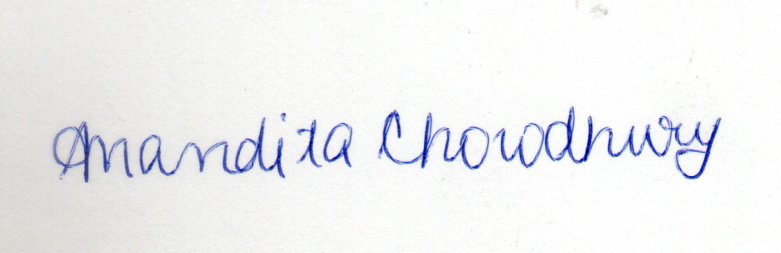 Anandita Chowdhury